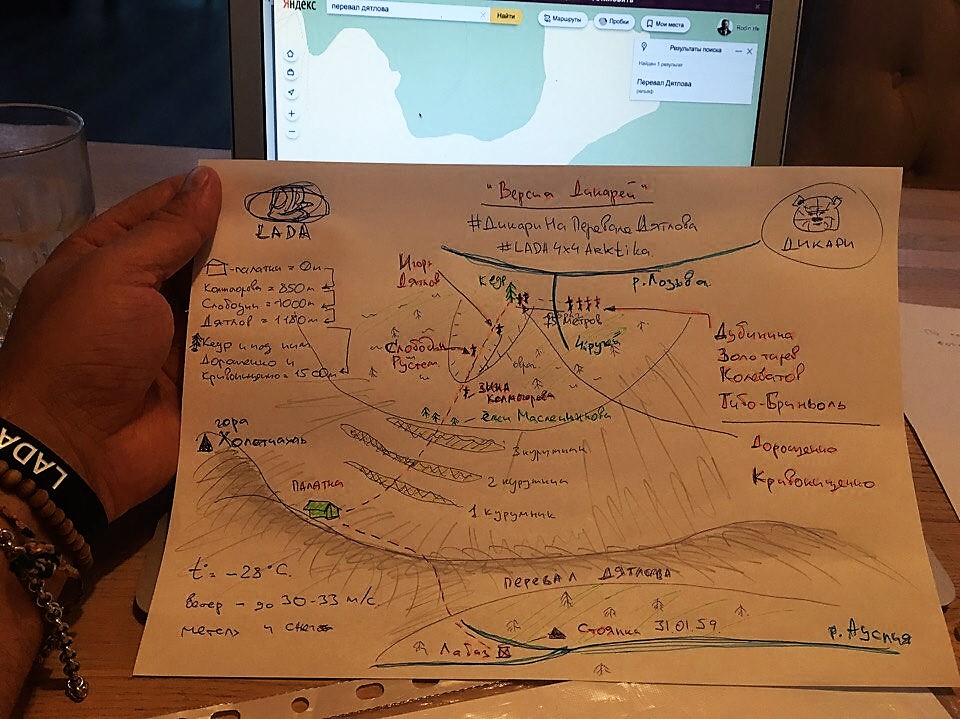 Яндекс
перевал дятлова
Найти
Маршруты
Пробки
Мои места
Результаты поиска
Найден 1 результат
Перевал Дятлова
рельеф
"Версия Дикарей"
#ДикариНаПеревалеДятлова
#LADA4x4Arktika
LADA
ДИКАРИ
-палатка = 0м
Колмогорова = 850м
Слободин = 1000м
Дятлов = 1180м
Кедр и под ним
Дорошенко и
Кривонищенко = 1500м
Игорь
Дятлов
кедр
р.Лозьва
75 метров
4.ручей
Слободин
Рустем
овраг
ЗИНА
Колмогорова
ёлки Масленникова
Дубинина
Золотарев
Колеватов
Тибо-Бриньоль
Дорошенко
Кривонищенко
гора
Холатчахль
3 курумник
2 курумника
1 курумник
ПАЛАТКА
t° = -28°C.
ветер - до 30-33 м/с,
метель и снег
ПЕРЕВАЛ ДЯТЛОВА
Стоянка 31.01.59.
р.Ауспия
Лабаз
LADA